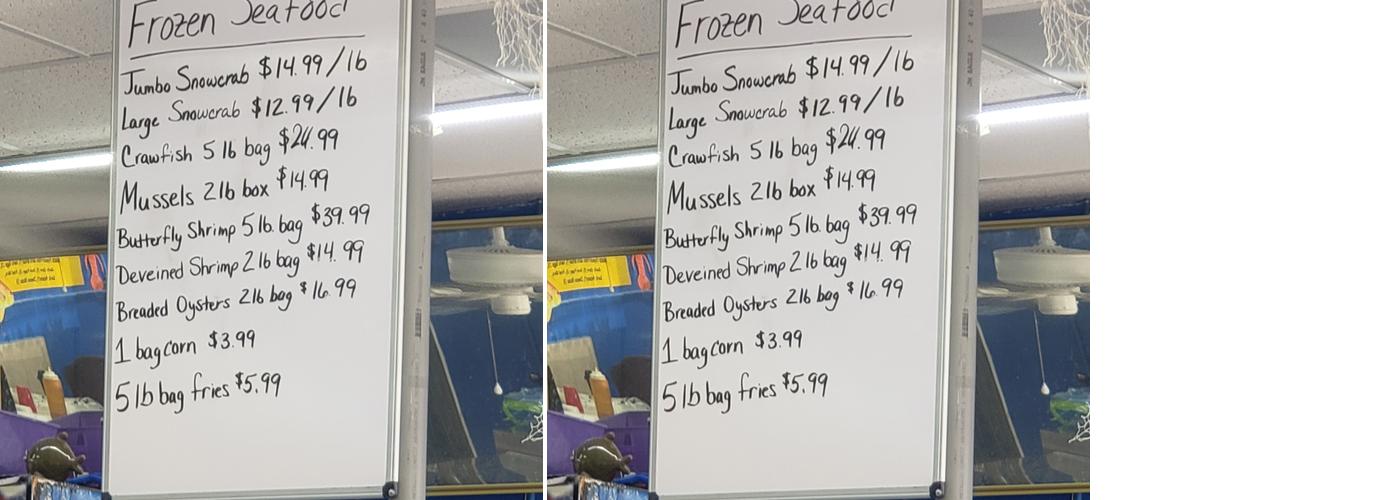 Frozen Seafood
Jumbo Snowcrab $14.99/lb
Large Snowcrab $12.99/lb
Crawfish 5 lb bag $24.99
Mussels 2lb box $14.99
Butterfly Shrimp 5lb. bag $39.99
Deveined Shrimp 2lb bag $14.99
Breaded Oysters 2lb bag $16.99
1 bag corn $3.99
5 lb bag fries $5.99
Frozen Seafood
Jumbo Snowcrab $14.99/lb
Large Snowcrab $12.99/lb
Crawfish 5 lb bag $24.99
Mussels 2lb box $14.99
Butterfly Shrimp 5lb. bag $39.99
Deveined Shrimp 2lb bag $14.99
Breaded Oysters 2lb bag $16.99
1 bag corn $3.99
5 lb bag fries $5.99